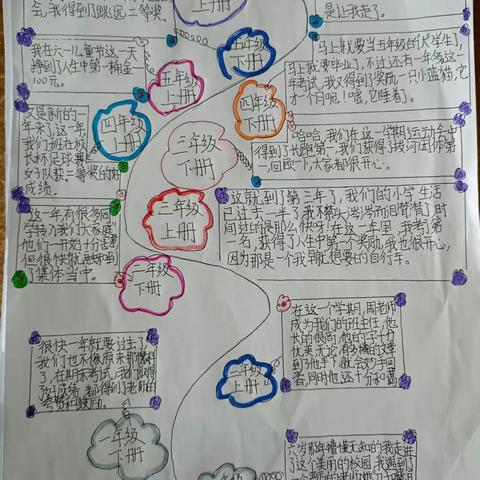 会,我得到了跳远二等奖。
是让我走了。
五年级
下册
我在六一儿童节这一天
挣到了人生中第一桶金
100元。
五年级
上册
马上就要当五年级的大学生了,
马上就要毕业了,不过还有一年多这一
年考试,我又得到了奖励一只小蓝猫,它
才一个月呢!嘘,它睡着了。
四年级
下册
又是新的一
年来了这一年,
我们班在校
长杯足球赛,
女子队获二等奖的好
成绩。
四年级
上册
哈哈,我们在这一学期运动会中
得到了长跑第一,我们获得了
一,回
大家都很开心。
三年级
下册
这就到了第三年了,我们的小学生活
已过去一半了我不禁
时间过的是那么快呀!在这一年里,我考了第
一名,获得了人生中第一个奖励,我也很开心,
因为那是一个我早就想要的自行车。
三年级
上册
这一年有很多同
学转入我们大家庭
他们一开始十分
但很快就
了集体当中。
二年级
下册
在这个学期,周老师
成为我们的班主任,他
长的很高,他的字十分
优美
无论有多
到了他手
就会
同时他还十分和
二年级
上册
很快一年就要过去了,
我们也不像原来那
了,在期末考试,我们取得
好成绩,都得到老师的
一年级
下册
六岁那年懵懂无知的我走进
了这个美丽的校园,我遇到了